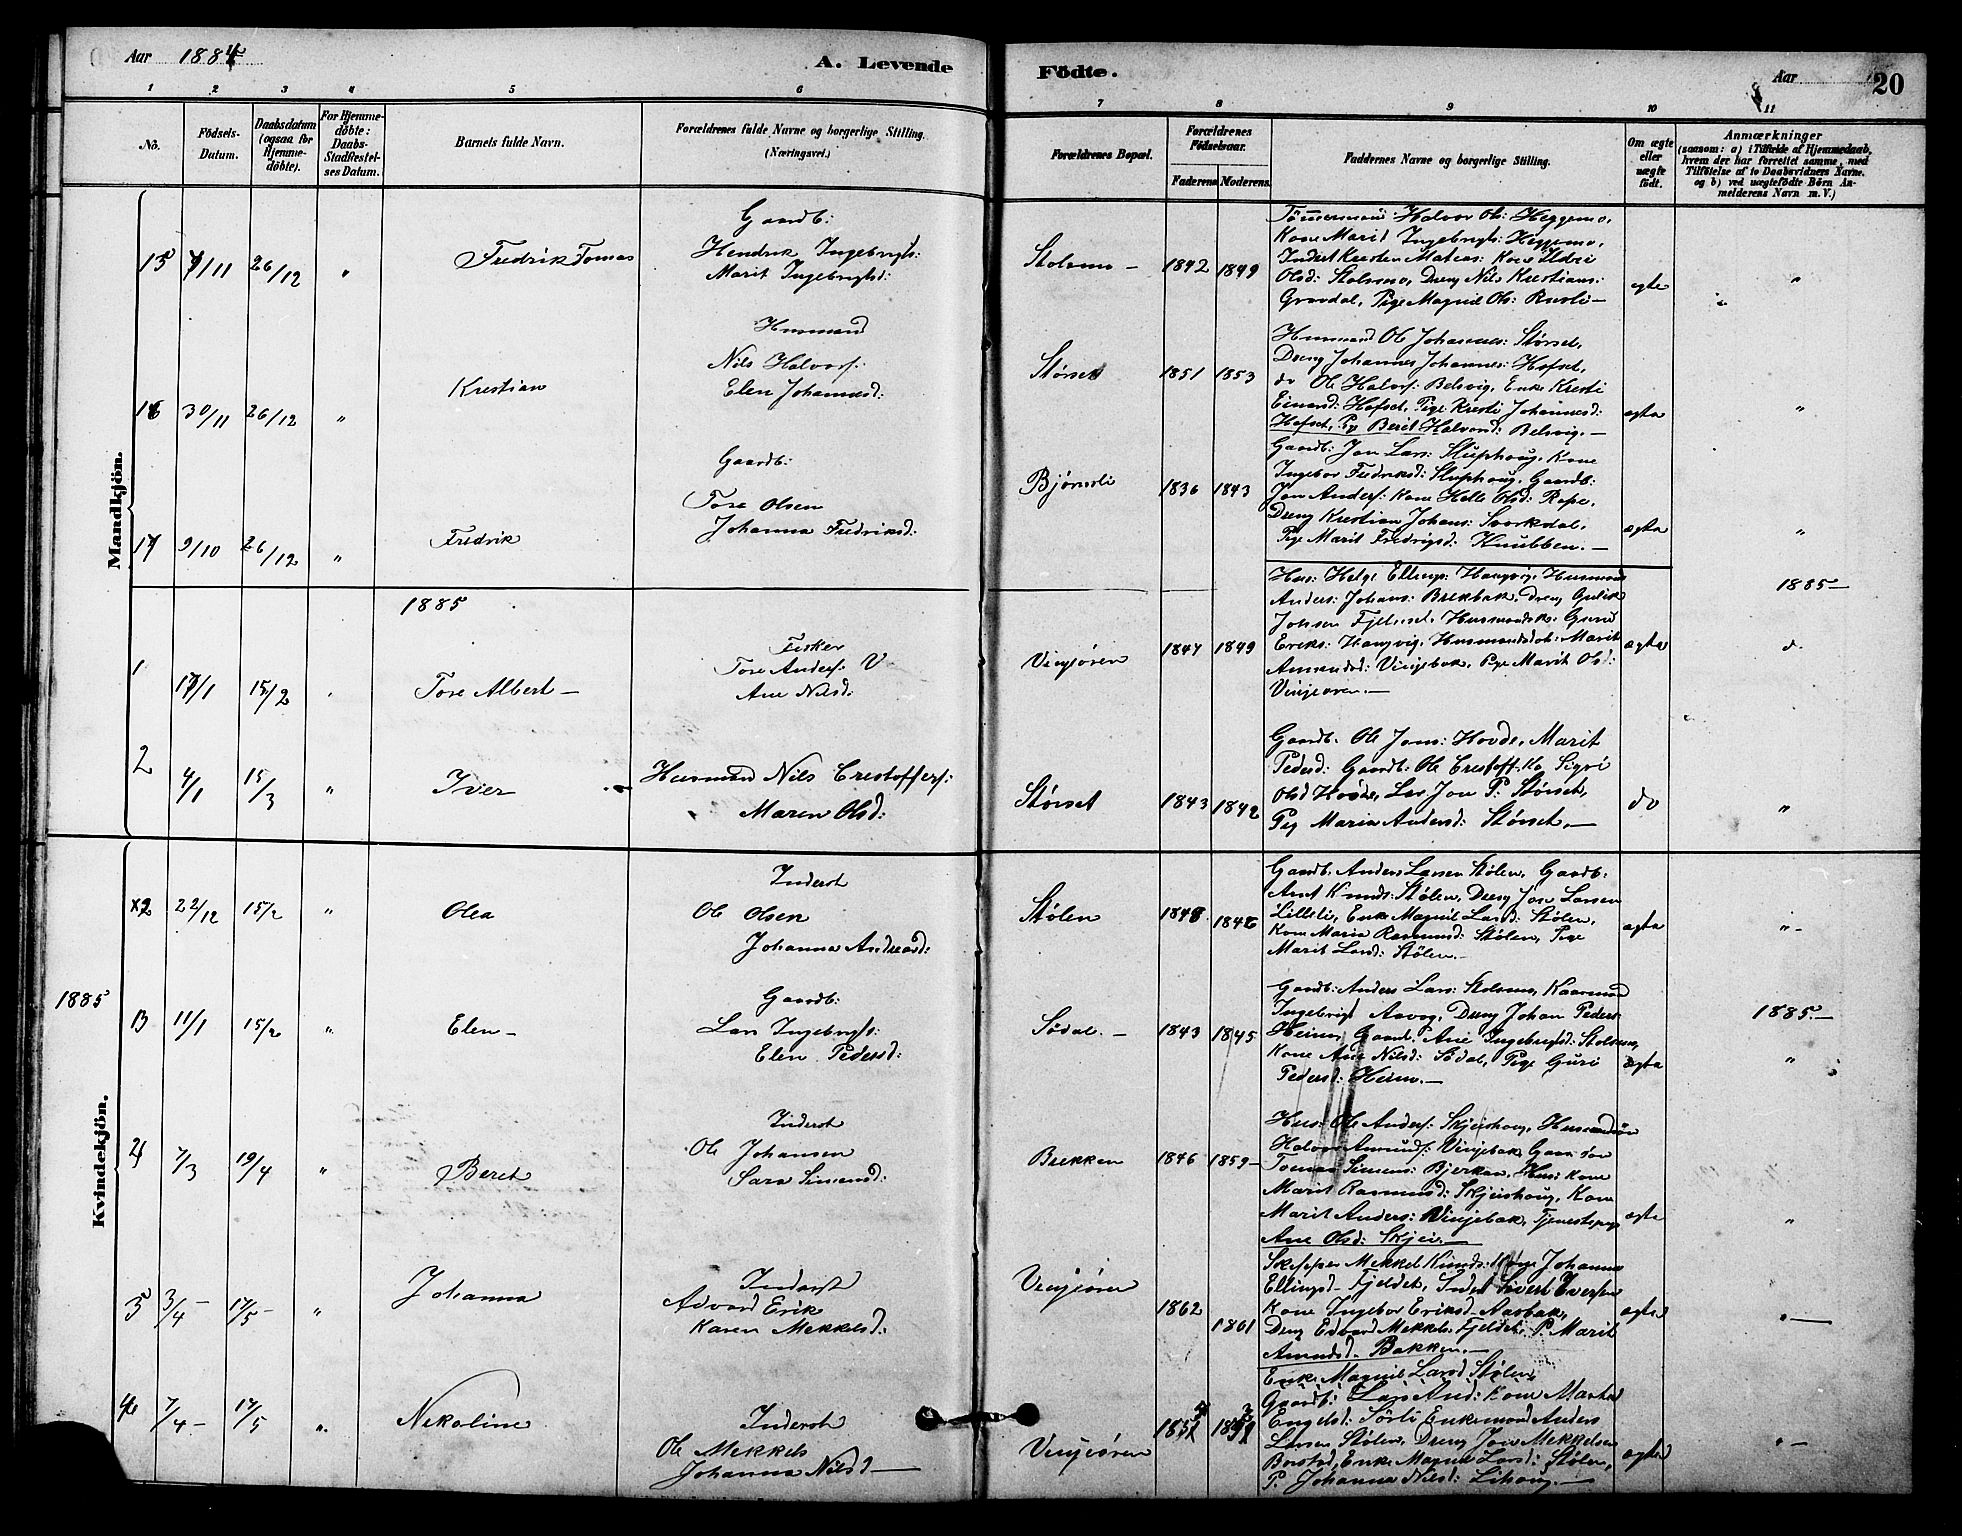 Aar 1884
A. Levende Födte.
Aar 20
1 2 3 4 5 6 7 8 9 10 11
No.
Födsels-Datum.
Daabsdatum (ogsaa for Hjemmedöbte).
For Hjemmedöbte: Daabs-Stadfæstelses Datum.
Barnets fulde Navn.
Forældrenes fulde Navne og borgerlige Stilling.
(Næringsvei.)
Forældrenes Bopæl.
Forældrenes Födselsaar.
Faderens Moderens.
Faddernes Navne og borgerlige Stilling.
Om ægte eller uægte födt.
Anmærkninger
(saasom: a) i Tilfælde af Hjemmedaab, hvem der har forrettet samme, med Tilföielse af to Daabsvidners Navne. og b) ved uægtefödte Börn Anmelderens Navn m. V.)
Mandkjön.
15 7/11 26/12 " Fredrik Tomas
Gaardb:
Hendrik Ingebrigts:
Marit Ingebrigtsd:
Stolsmo – 1842 1849
Tömmermand Halvor Ols: Heggemo,
Kone Marit Ingebrigts: Heggemo,
Inderst Kresten Matias: Kone Ildri
Olsd: Stolsmo, Dreng Nils Kristians:
Gravdal, Pige Magnil Ols: Rusli –
egte "
16 30/11 26/12 " Kristian
Husmand
Nils Halvors:
Elen Johannesd:
Størset 1851 1853
Husmand Ole Johannes: Størset,
Dreng Johannes Johannes: Hofset,
do Ole Halvors: Belsvig, Enke Kresti
Einarsd: Hofset, Pige Kresti Johannesd:
Hofset, Pg Berit Halvorsd: Belsvig. –
ægta "
17 9/10 26/12 " Fredrik
Gaardb:
Tore Olsen
Johanna Fredriksd:
Bjørnsli 1836 1843
Gaardb: Jon Lars: Sluphoug, Kone
Ingebor Fredriksd: Sluphoug, Gaardb:
Jon Anders: Kone Helle Olsd: Røpe,
Dreng Krestian Johans: Svorkdal,
Pige Marit Fredrigsd: Knubben. –
ægta "
1885
1885 –
1 17/1 15/2 " Tore Albert –
Fisker
Tore Anders: V
Ane Nilsd:
Vinjeøren 1847 1849
Hus: Helge Ellings: Haugvig, Husmand
Anders: Johans: Brekbak, Dreng Gulik
Johsen Fjelnset, Husmandsk. Gurid
Eriks: Haugvig, Husmandsdot: Marit
Amundsd: Vinjebak, Pge Marit Olsd:
Vinjeøren. –
ægta
2 4/1 15/3 " Iver
Husmand Nils Crestoffers:
Maren Olsd:
Størset 1843 1842
Gaardb: Ole Jons: Hovde, Marit
Pedersd: Gaardb: Ole Crestoff. Ko Sigri
Olsd Hovde, Lar Jon P. Størset,
Pig Maria Andersd: Størset. –
do "
Kvindekjön.
2 22/12 15/2 " Olea
Inderst
Ole Olsen
Johanna Andreasd:
Stølen 1848 1846
Gaardb. Anders Larsen Stølen, Gaardb:
Arnt Knuds: Stølen, Dreng Jon Larsen
Lilleli, Enke Magnil Larsd: Stølen,
Kone Maria Rasmusd: Stølen, Pige
Marit Larsd: Stølen. –
ægta "
1885
3 11/1 15/2 " Elen –
Gaardb:
Lars Ingebrigts:
Elen Pedersd:
Södal. – 1843 1845
Gaardb: Anders Lars: Stolsmo, Kaarmand
Ingebrigt Aavog, Dreng Johan Peders:
Heim, Gaard. Ane Ingebrigtsd: Stolsmo,
Kone Ane Nilsd: Södal, Pige Guri
Pedersd: Heim. –
ægta
1885. –
"
4 7/3 19/4 " Beret
Inderst
Ole Johansen
Sara Simensd:
Brekken 1846 1859 –
Hus: Ole Anders: Skjeishoug, Husmandsøn
Halvor Amunds: Vinjebak, Gaarsøn
Tomas Simens: Bjerkan, Hus: Kone
Marit Rasmusd: Skjeishoug, Kone
Marit Anders: Vinjebak, Tjenestepige
Ane Olsd: Skjei. –
ægte "
5 3/4 – 17/5 – " Johanna
Inderst
Advard Erik
Karen Mekkelsd:
Vinjeøren 1862 1861
Skipper Mekkel Knuds: Kone Johanna
Ellingsd. Fjeldet, Inder Sivert Iversen
Kone Ingebor Eriksd. Aarbak,
Dreng Edvard Mekkels: Fjeldet, P. Marit
Amundsd. Bakken. –
"
6 7/4 – 17/5 " Nekoline
Inderst
Ole Mekkels
Johanna Nilsd –
Vinjeøren
Enke Magnil Larsd Stølen,
Gaardb: Lars And: Kone Marta
Engelsd: Sörli Enkemand Anders
Larsen Stølen, Dreng Jon Mekkelsen
Borstad, Enke Magnil Larsd: Stølen,
P. Johanna Nilsd: Lihoug. –
" –